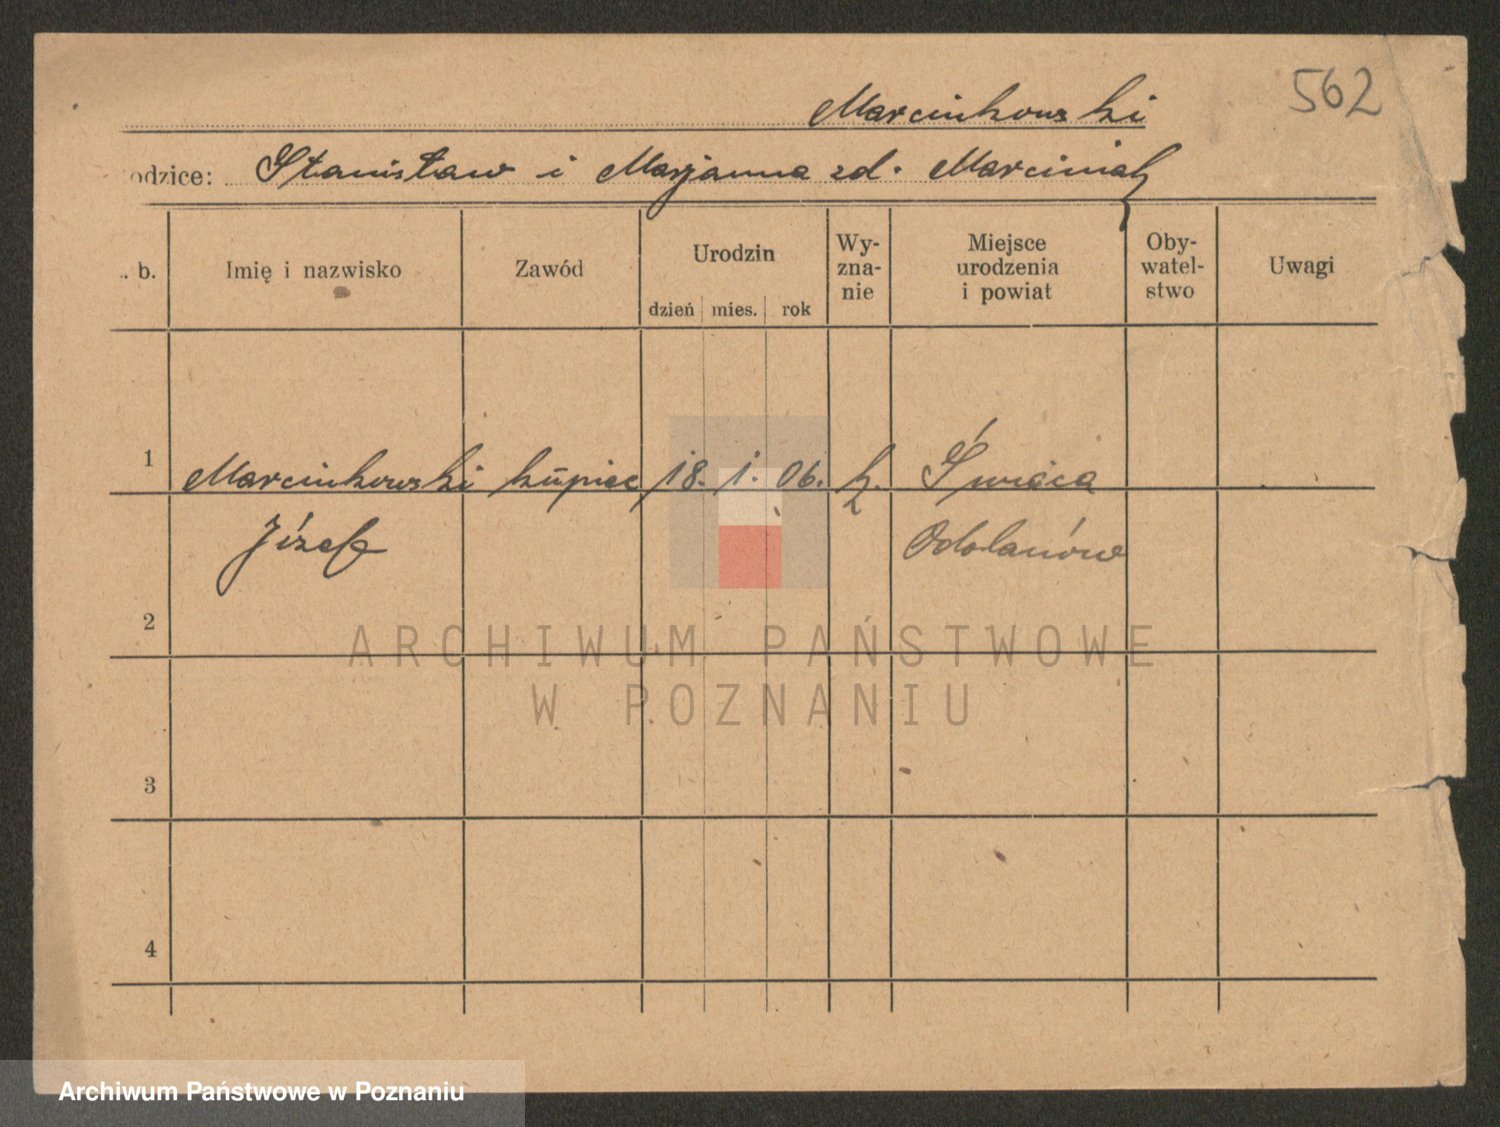 562
Marcinkowski
odzice: Stanisław i Marjanna zd. Marciniak
. b. Imię i nazwisko Zawód Urodzin dzień mies. rok Wy-zna-nie Miejsce urodzenia i powiat Oby-watel-stwo Uwagi
1 Marcinkowski kupiec 18. 1. 06. k. Świeca
Józef Odolanów
2
ARCHIWUM PAŃSTWOWE
W POZNANIU
3
4
Archiwum Państwowe w Poznaniu